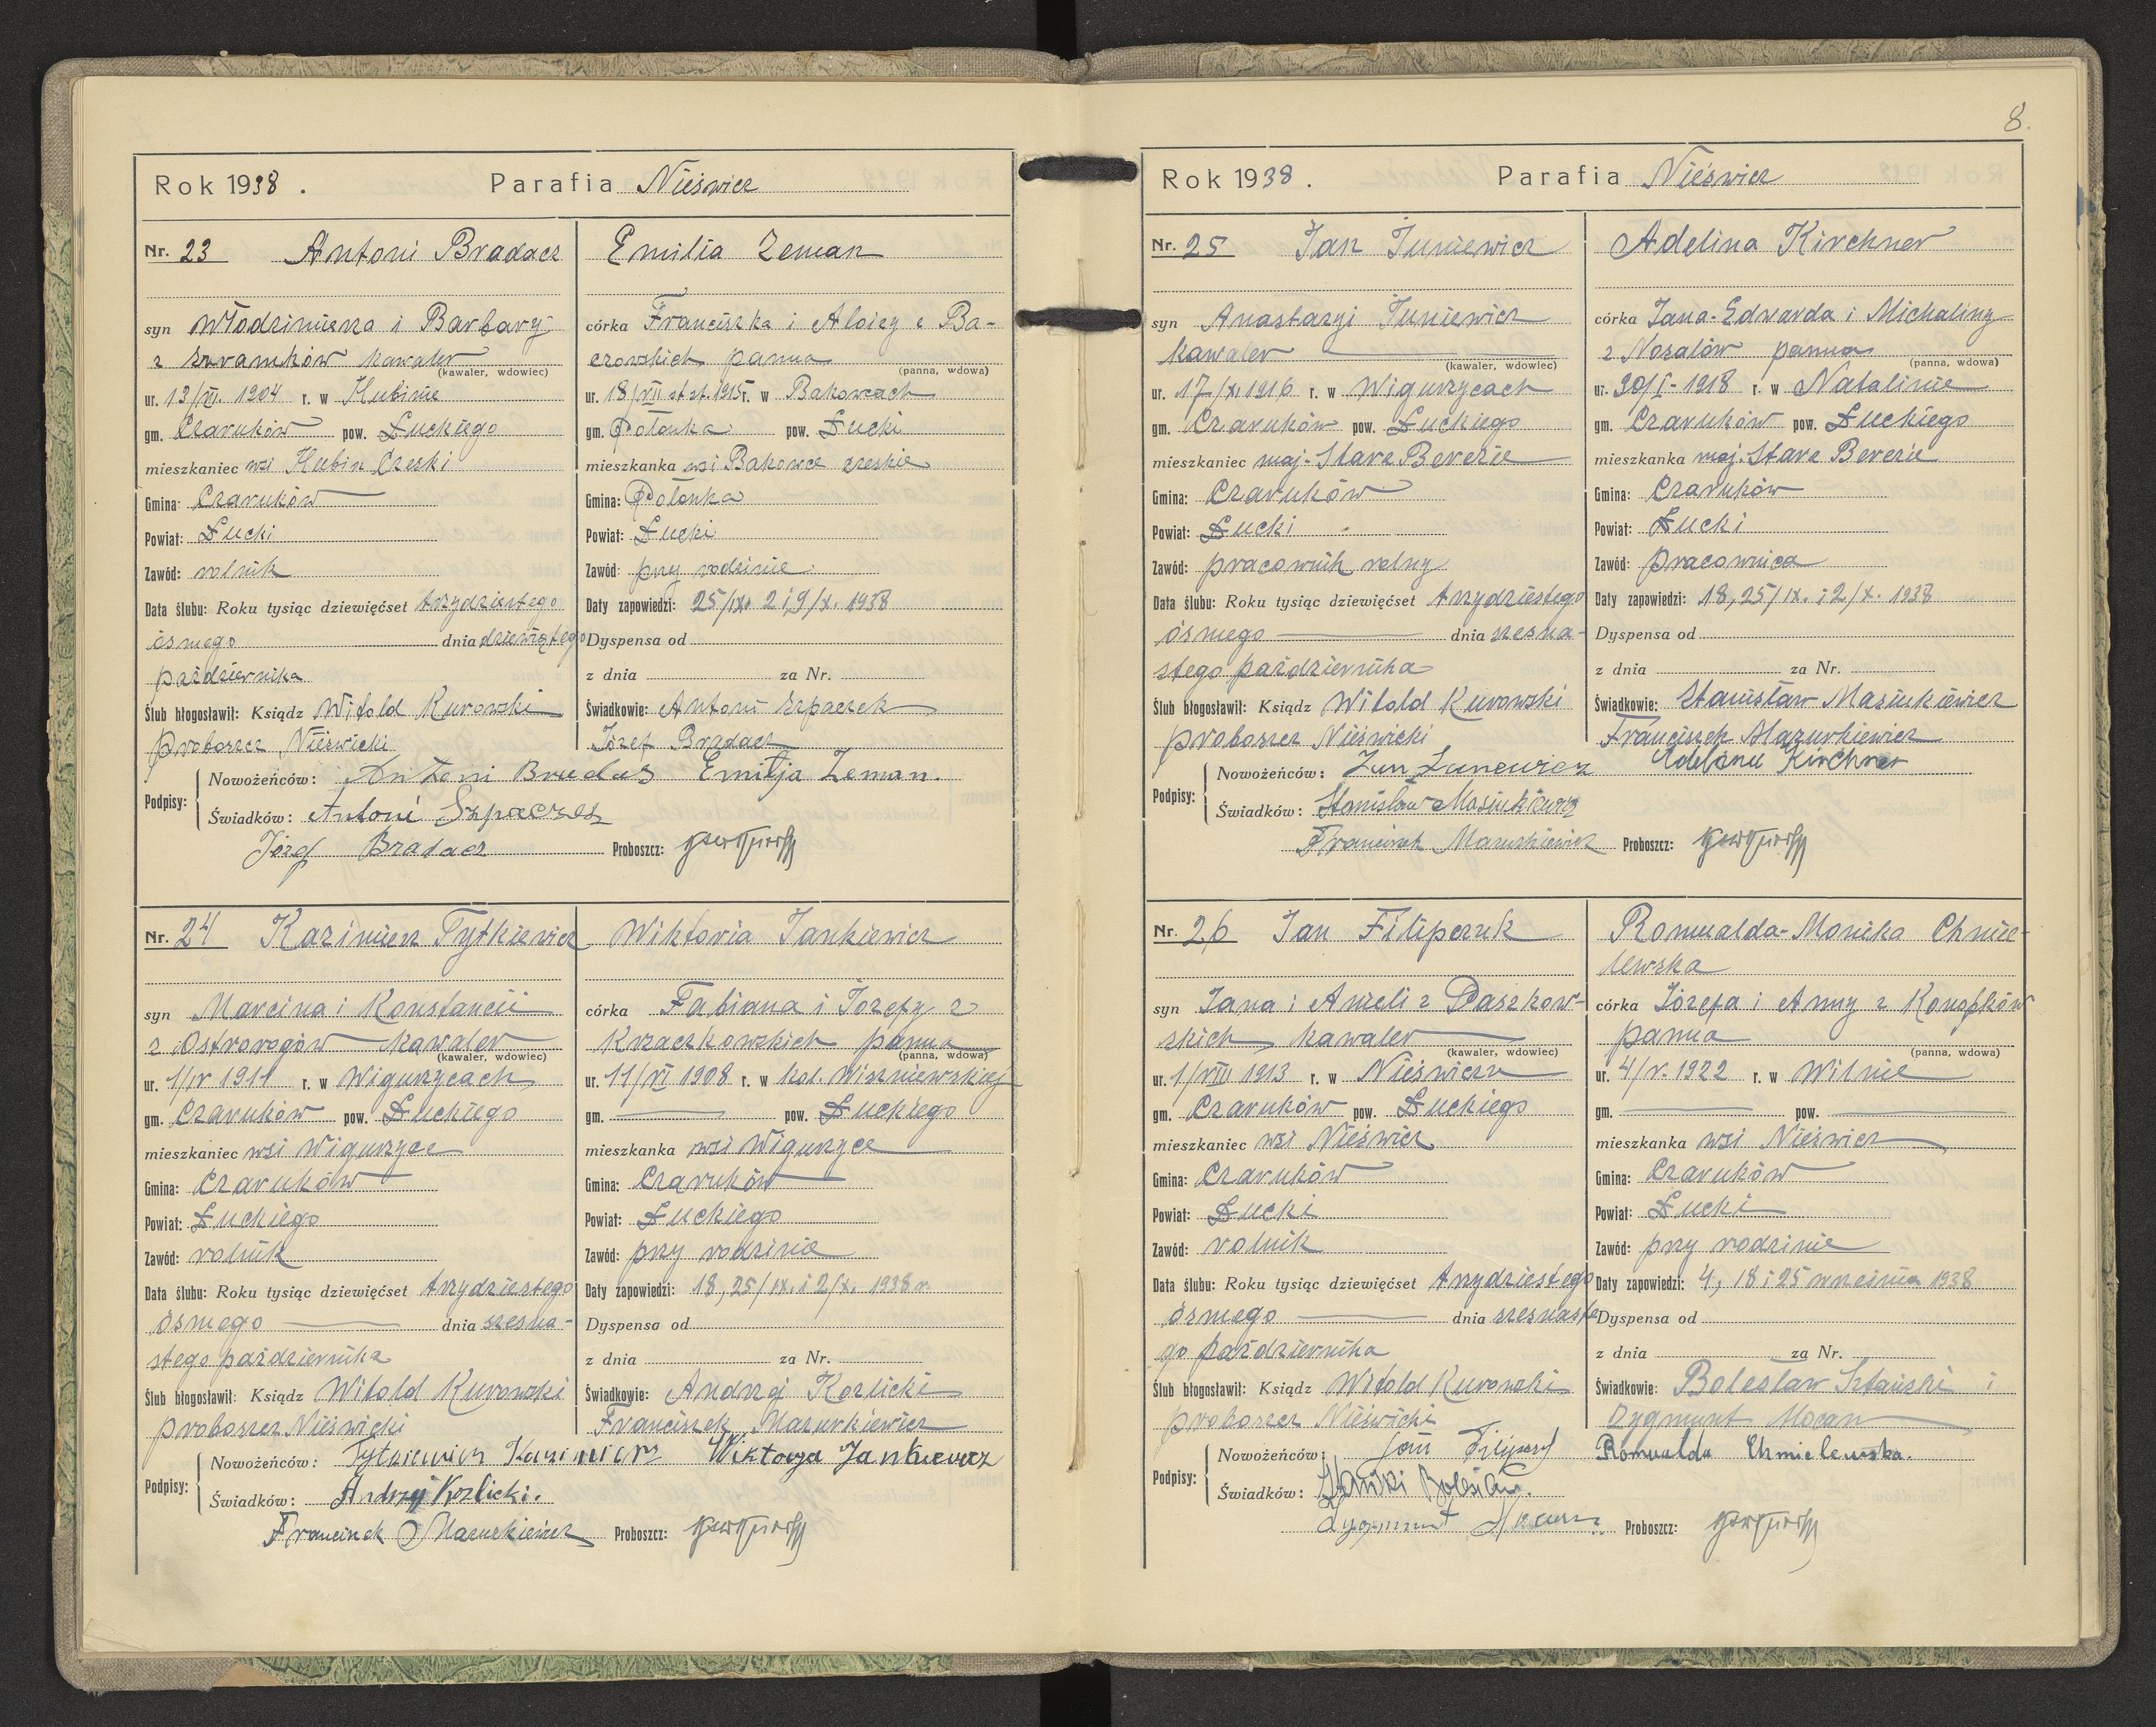 8.
Rok 1938. Parafia Nieświcz
Nr. 23 Antoni Bradacz
syn Włodzimierza i Barbary
z kawaler
(kawaler, wdowiec)
ur. 13/VI. 1904 r. w Hubinie
gm. Czaruków pow. Łuckiego
mieszkaniec wsi Hubin Czeski
Gmina: Czaruków
Powiat: Łucki
Zawód: rolnik
Data ślubu: Roku tysiąc dziewięćset trzydziestego
ósmego dnia dziewiątego
października
Ślub błogosławił: Ksiądz Witold Kurowski
proboszcz Nieświcki
Emilia Zeman
córka Franciszka i Aloizy z Ba-
czowskich panna
(panna, wdowa)
ur. 18/VII st. st. 1915 r. w Bakowcach
gm. Połonka pow. Łucki
mieszkanka wsi Bakowce czeskie
Gmina: Połonka
Powiat: Łucki
Zawód: przy rodzinie
Daty zapowiedzi: 25/IX. 2 i 9/X. 1938
Dyspensa od
z dnia za Nr.
Świadkowie: Antoni Szpaczek
Józef Bradacz
Podpisy:
Nowożeńców: Antoni Bradas Emilja Zeman.
Świadków: Antoni Szpaczek
Józef Bradacz Proboszcz:
Nr. 24 Kazimierz Tytkiewicz
syn Marcina i Konstancji
z Ostrorogów kawaler
(kawaler, wdowiec)
ur. 1/IV 1911 r. w Wigurzycach
gm. Czaruków pow. Łuckiego
mieszkaniec wsi Wigurzyce
Gmina: Czaruków
Powiat: Łuckiego
Zawód: rolnik
Data ślubu: Roku tysiąc dziewięćset trzydziestego
ósmego dnia szesna-
stego października
Ślub błogosławił: Ksiądz Witold Kurowski
proboszcz Nieświcki
Wiktoria Jankiewicz
córka Fabiana i Józefy z
Krzaczkowskich panna
(panna, wdowa)
ur. 11/VI 1908 r. w kol. Wiszniewskiej
gm. pow. Łuckiego
mieszkanka wsi Wigurzyce
Gmina: Czaruków
Powiat: Łuckiego
Zawód: przy rodzinie
Daty zapowiedzi: 18, 25/IX. i 2/X. 1938 r.
Dyspensa od
z dnia za Nr.
Świadkowie: Andrzej Kozlicki
Franciszek Mazurkiewicz
Podpisy:
Nowożeńców: Tytkiewicz Kazimierz Wiktorja Jankiewicz
Świadków: Andrzej Kozlicki.
Franciszek Mazurkiewicz Proboszcz:
Rok 1938. Parafia Nieświcz
Nr. 25 Jan Juniewicz
syn Anastazyi Juniewicz
kawaler
(kawaler, wdowiec)
ur. 17/XI 1916 r. w Wigurzycach
gm. Czaruków pow. Łuckiego
mieszkaniec maj. Stare Bereżie
Gmina: Czaruków
Powiat: Łucki
Zawód: pracownik rolny
Data ślubu: Roku tysiąc dziewięćset trzydziestego
ósmego dnia szesna-
stego października
Ślub błogosławił: Ksiądz Witold Kurowski
proboszcz Nieświcki
Adelina Kirchner
córka Jana-Edwarda i Michaliny
z Nozalów panna
(panna, wdowa)
ur. 30/I- 1918 r. w Natalinie
gm. Czaruków pow. Łuckiego
mieszkanka maj. Stare Bereżie
Gmina: Czaruków
Powiat: Łucki
Zawód: pracownica
Daty zapowiedzi: 18, 25/IX. i 2/X. 1938
Dyspensa od
z dnia za Nr.
Świadkowie: Stanisław Masiukiewicz
Franciszek Mazurkiewicz
Podpisy:
Nowożeńców: Jan Juniewicz Kirchner
Świadków: Stanisław Masiukiewicz
Franciszek Mazurkiewicz Proboszcz:
Nr. 26 Jan Filipczuk
syn Jana i Anieli z Daszkow-
skich kawaler
(kawaler, wdowiec)
ur. 1/VIII 1913 r. w Nieświczu
gm. Czaruków pow. Łuckiego
mieszkaniec wsi Nieświcz
Gmina: Czaruków
Powiat: Łucki
Zawód: rolnik
Data ślubu: Roku tysiąc dziewięćset trzydziestego
ósmego dnia szesnaste
go października
Ślub błogosławił: Ksiądz Witold Kurowski
proboszcz Nieświcki
Romualda-Monika Chmie-
lewska
córka Józefa i Anny z Konopków
panna
(panna, wdowa)
ur. 4/V. 1922 r. w Wilnie
gm. pow.
mieszkanka wsi Nieświcz
Gmina: Czaruków
Powiat: Łucki
Zawód: przy rodzinie
Daty zapowiedzi: 4, 18 i 25 września 1938
Dyspensa od
z dnia za Nr.
Świadkowie: Bolesław i
Zygmunt Mocan
Podpisy:
Nowożeńców: Jan Romualda Chmielewska.
Świadków: Bolesław.
Zygmunt Proboszcz: